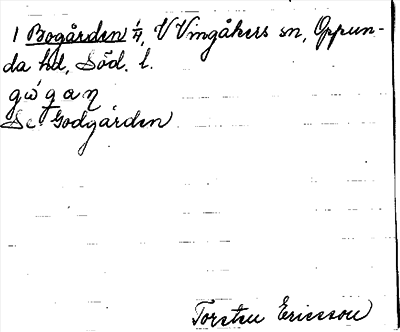 1 Bogården 1/4, V Vingåkers sn, Oppun-
da hd, Söd. l.
Se Godgården
Torsten Ericsson